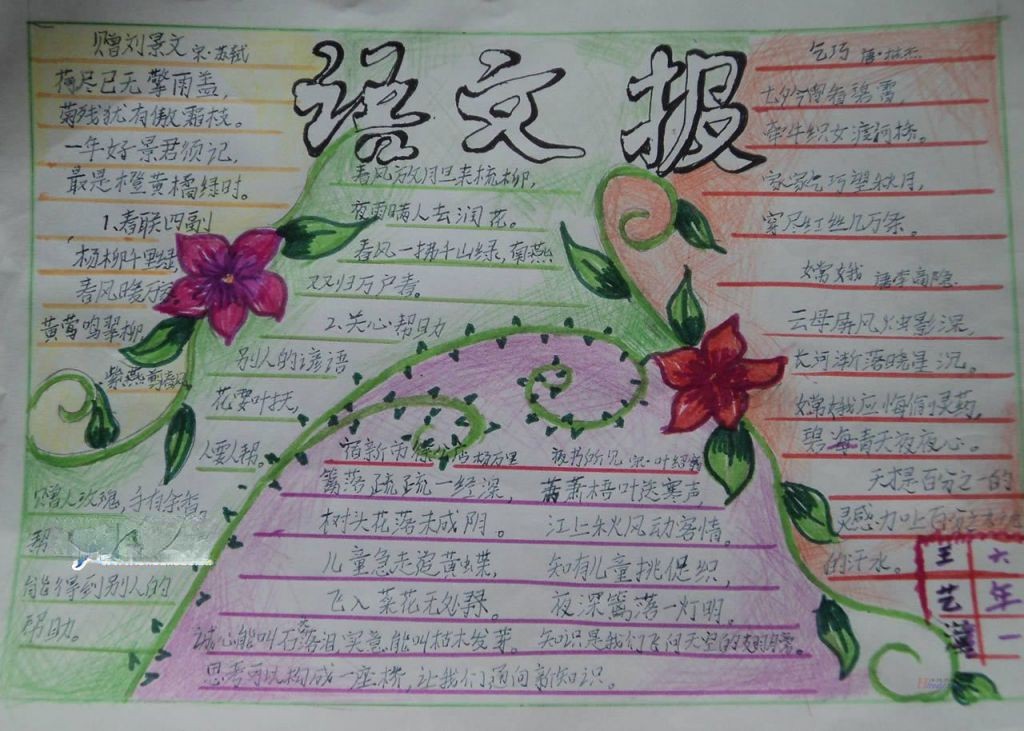 语文报
赠刘景文 宋·苏轼
荷尽已无擎雨盖,
菊残犹有傲霜枝。
一年好景君须记,
最是橙黄橘绿时。
1.春联四副
杨柳千里绿
春风暖万
黄莺鸣翠柳
紫燕剪春风
春风放月里来梳柳,
夜雨瞒人去润花。
春风一拂千山绿,南燕
双归万户春。
2.关心帮助
别人的谚语
花要叶扶,
人要人帮。
赠人玫瑰,手有余香。
帮
能得到别人的
帮助。
宿新市徐公店 杨万里
篱落疏疏一径深,
树头花落未成阴。
儿童急走追黄蝶,
飞入菜花无处寻。
夜书所见 宋·叶绍翁
萧萧梧叶送寒声,
江上秋风动客情。
知有儿童挑促织,
夜深篱落一灯明。
诚心能叫石头落泪,实意能叫枯木发芽。 知识是我们飞向天空的
思考可以构成一座桥,让我们通向新知识。
乞巧 唐·林杰
七夕今宵看碧霄,
牵牛织女渡河桥。
家家乞巧望秋月,
穿尽红丝几万条。
嫦娥 唐李商隐
云母屏风烛影深,
长河渐落晓星沉。
嫦娥应悔偷灵药,
碧海青天夜夜心。
天才是百分之一的
灵感,加上百分之
的汗水。
六年一
王艺